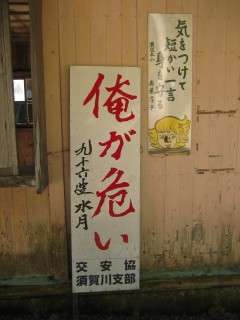 気をつけて
短かい一言
身を守る
俺が危い
水月
交安協
須賀川支部